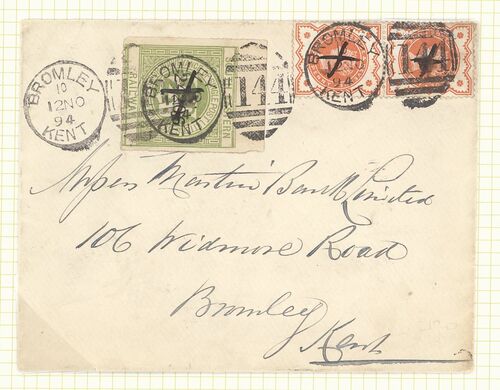 BROMLEY
10
12 NO
94
KENT
RAILWAY
BROMLEY
KENT
144
BROMLEY
94
KENT
144
Messrs Martin's Bank Limited
106 Widmore Road
Bromley
Kent